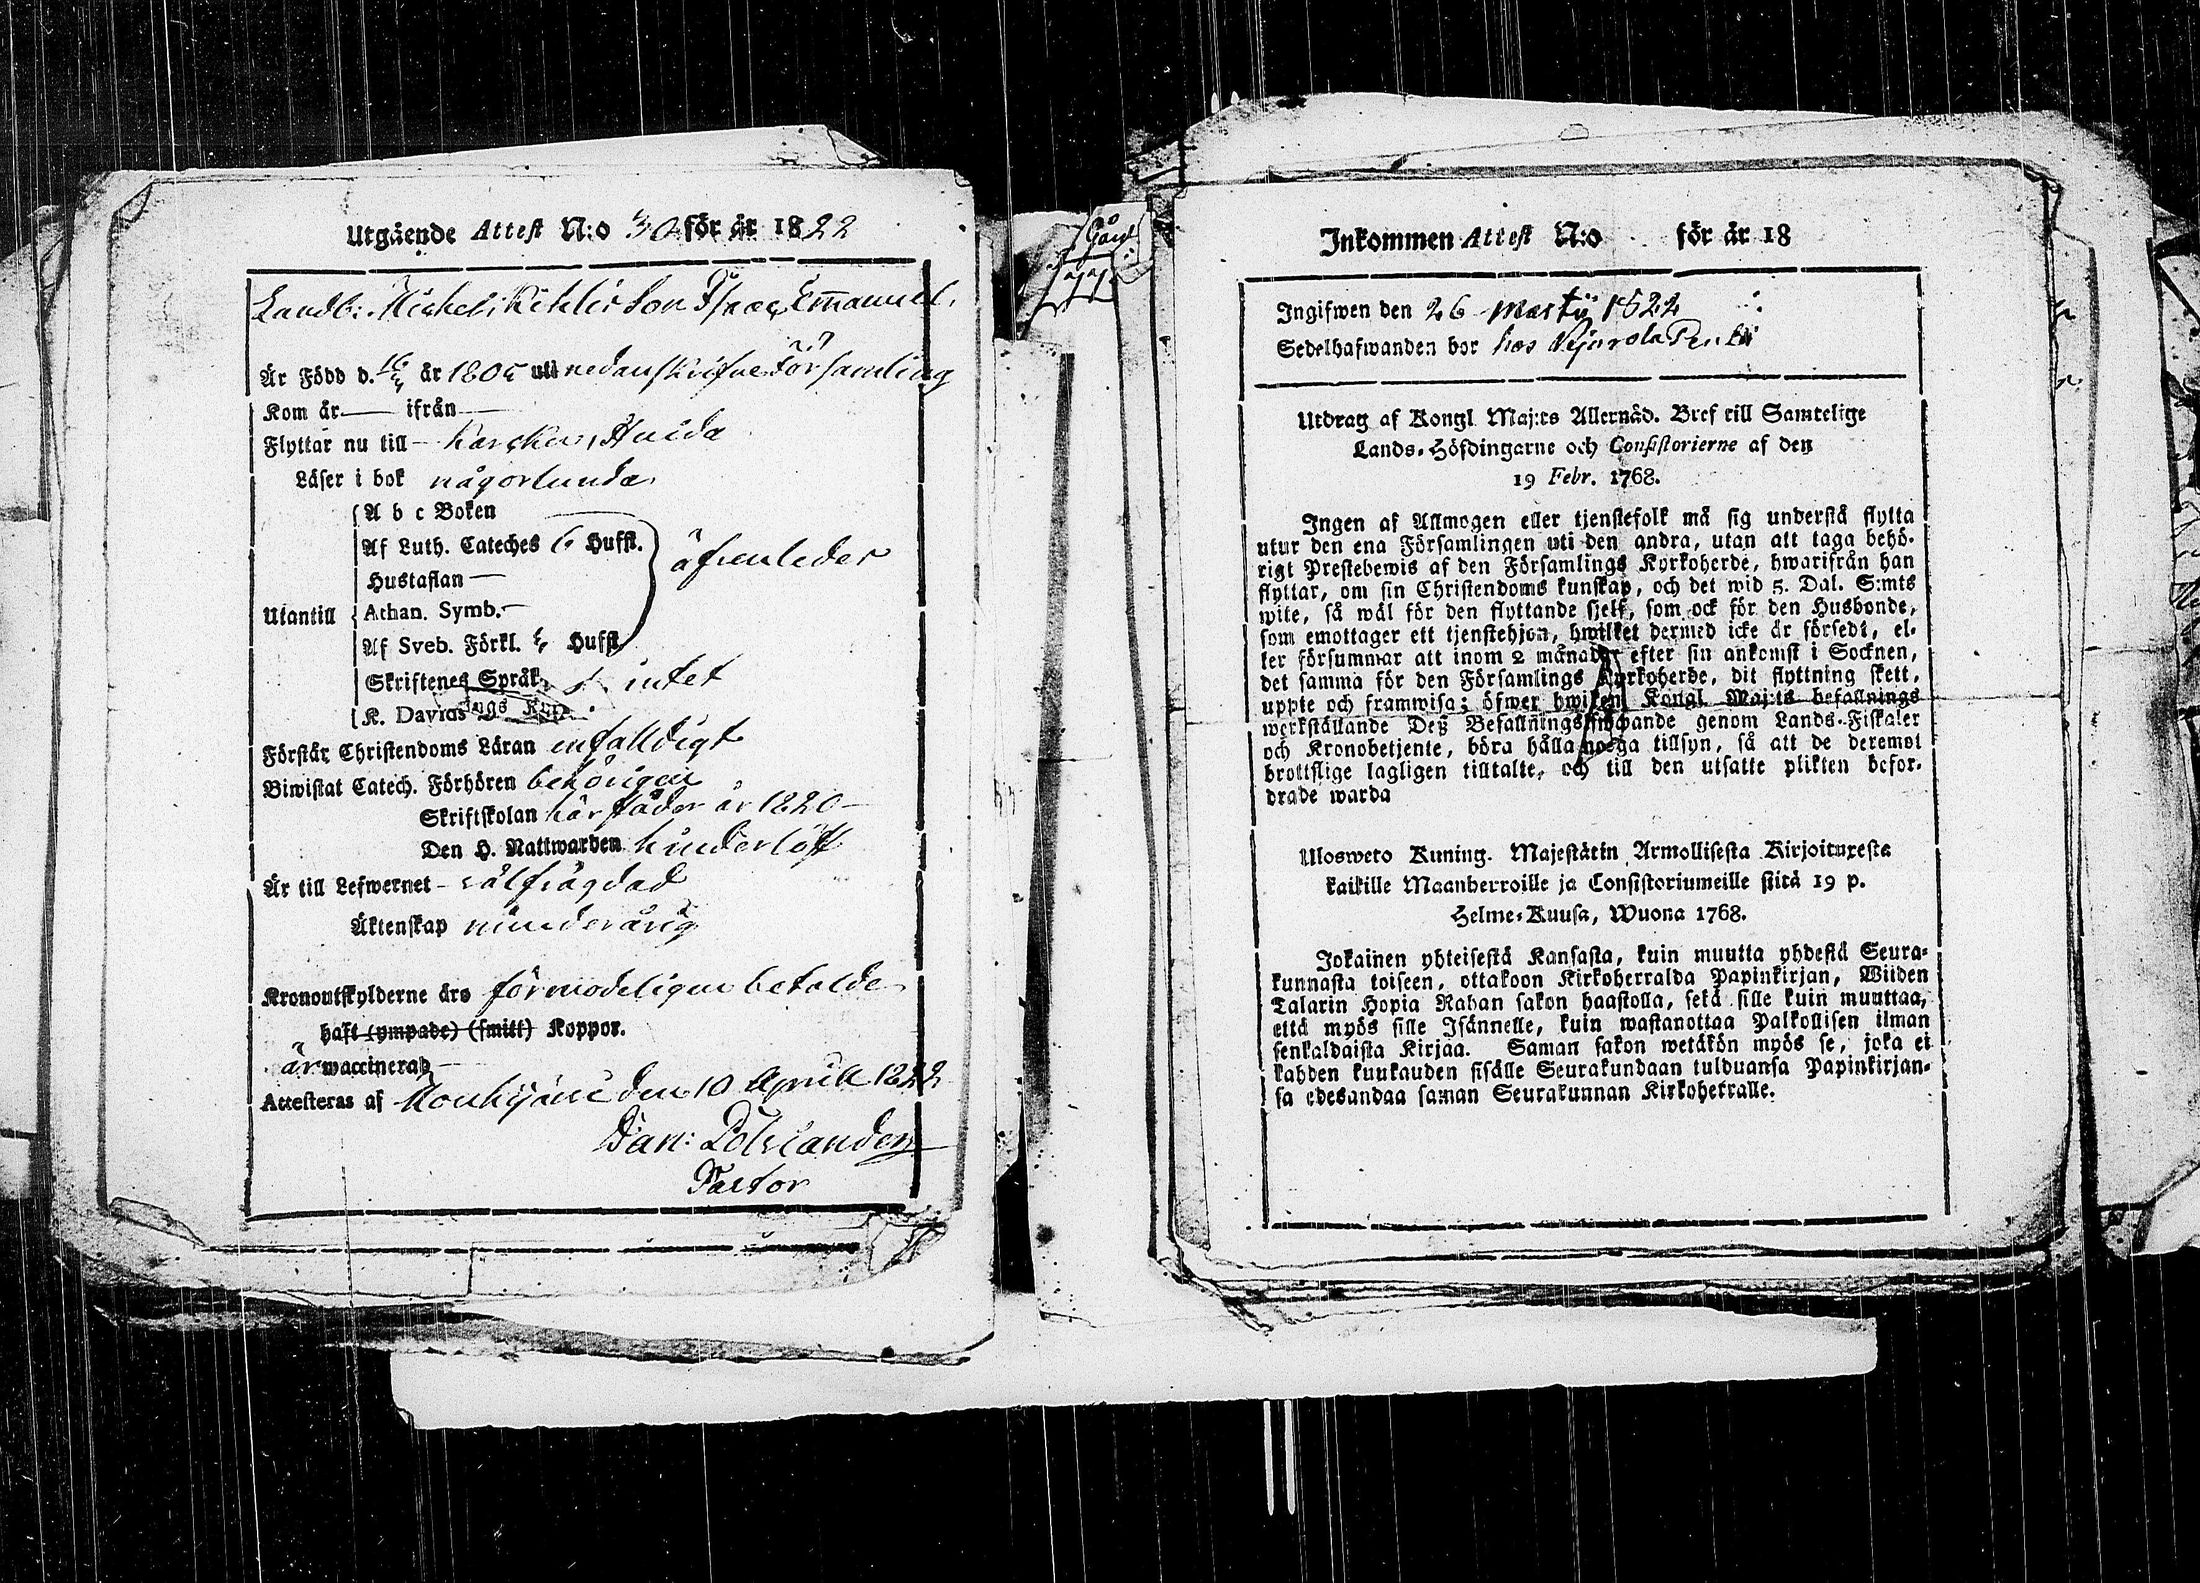 Utgående Attest N:o 30 för år 1822
Landb: Michel Köhlers Son Isaac Emanuel.
Är Född d. år 1805 uti nedanskrifne Församling
Kom år — ifrån —
Flyttar nu till — Karcku,
Läser i bok någorlunda
A b c Boken
Af Luth. Cateches 6 Hufst.
Hustaflan —
Utantill
Athan. Symb. —
Af Sveb. Förkl. Hufst
äfvenledes
Skriftenes Språk intet
K. Davids
Förstår Christendoms Läran enfalldigt
Biwistat Catech. Förhören behörigen
Skriftskolan härstädes år 1820 —
Den H. Nattwarden hinderlöst
Är till Lefwernet — välfrägdad
Äktenskap minderårig
Kronoutskylderne äro förmodeligen betalde
haft (ympade) (smitt) Koppor.
är waccinerad —
Attesteras af Mouhijärvi den 10 Aprill 1822
Dan: Polviander
Pastor
Gård
Inkommen Attest N:o för år 18
Ingifwen den 26 Martii 1822
Sedelhafwanden bor hos
Utdrag af Kongl. Maj:ts Allernåd. Bref till Samtelige
Lands-Höfdingarne och Consistorierne af den
19 Febr. 1768.
Ingen af Allmogen eller tjenstefolk må sig understå flytta
utur den ena Församlingen uti den andra, utan att taga behö-
rigt Prestebewis af den Församlings Kyrkoherde, hwarifrån han
flyttar, om sin Christendoms kunskap, och det wid 5. Dal. S:mts
wite, så wäl för den flyttande sjelf, som ock för den Husbonde,
som emottager ett tjenstehjon, hwilket dermed icke är försedt, el-
ler försummar att inom 2 månader efter sin ankomst i Socknen,
det samma för den Församlings Kyrkoherde, dit flyttning skett,
uppte och framwisa; öfwer hwilken Kongl. Maj:ts befallnings
werkställande Deß Befallningshafwande genom Lands-Fiskaler
och Kronobetjente, böra hålla noga tillsyn, så att de deremot
brottslige lagligen tilltalte, och till den utsatte plikten befor-
drade warda
Ulosweto Kuning. Majestätin Armollisesta Kirjoituxesta
kaikille Maanherroille ja Consistoriumeille siitä 19 p.
Helme-Kuusa, Wuona 1768.
Jokainen yhteisestä Kansasta, kuin muutta yhdestä Seura-
kunnasta toiseen, ottakoon Kirkoherralda Papinkirjan, Wiiden
Talarin Hopia Rahan sakon haastolla, sekä sille kuin muuttaa,
että myös sille Isännelle, kuin wastanottaa Palkollisen ilman
senkaldaista Kirjaa. Saman sakon wetäkön myös se, joka ei
kahden kuukauden sisälle Seurakundaan tulduansa Papinkirjan-
sa edesandaa saman Seurakunnan Kirkoherralle.